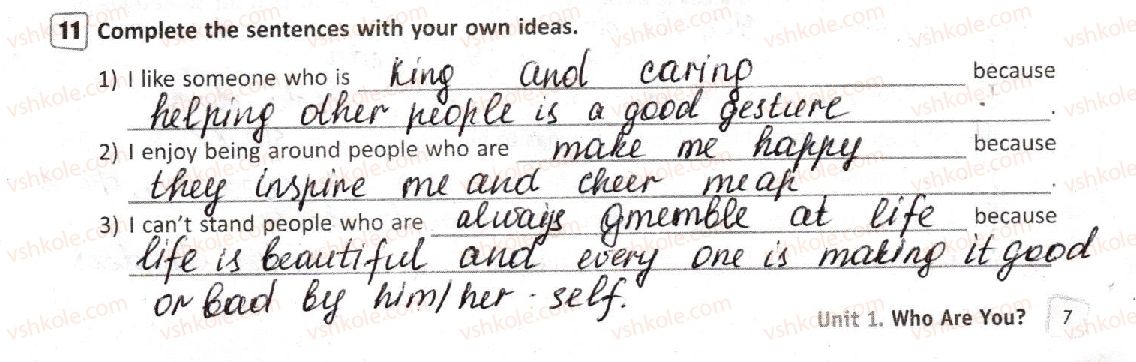 11 Complete the sentences with your own ideas.
1) I like someone who is king and caring because
helping other people is a good gesture.
2) I enjoy being around people who are make me happy because
they inspire me and cheer me up.
3) I can't stand people who are always gmemble at life because
life is beautiful and every one is making it good
or bad by him/her-self.
Unit 1. Who Are You? 7